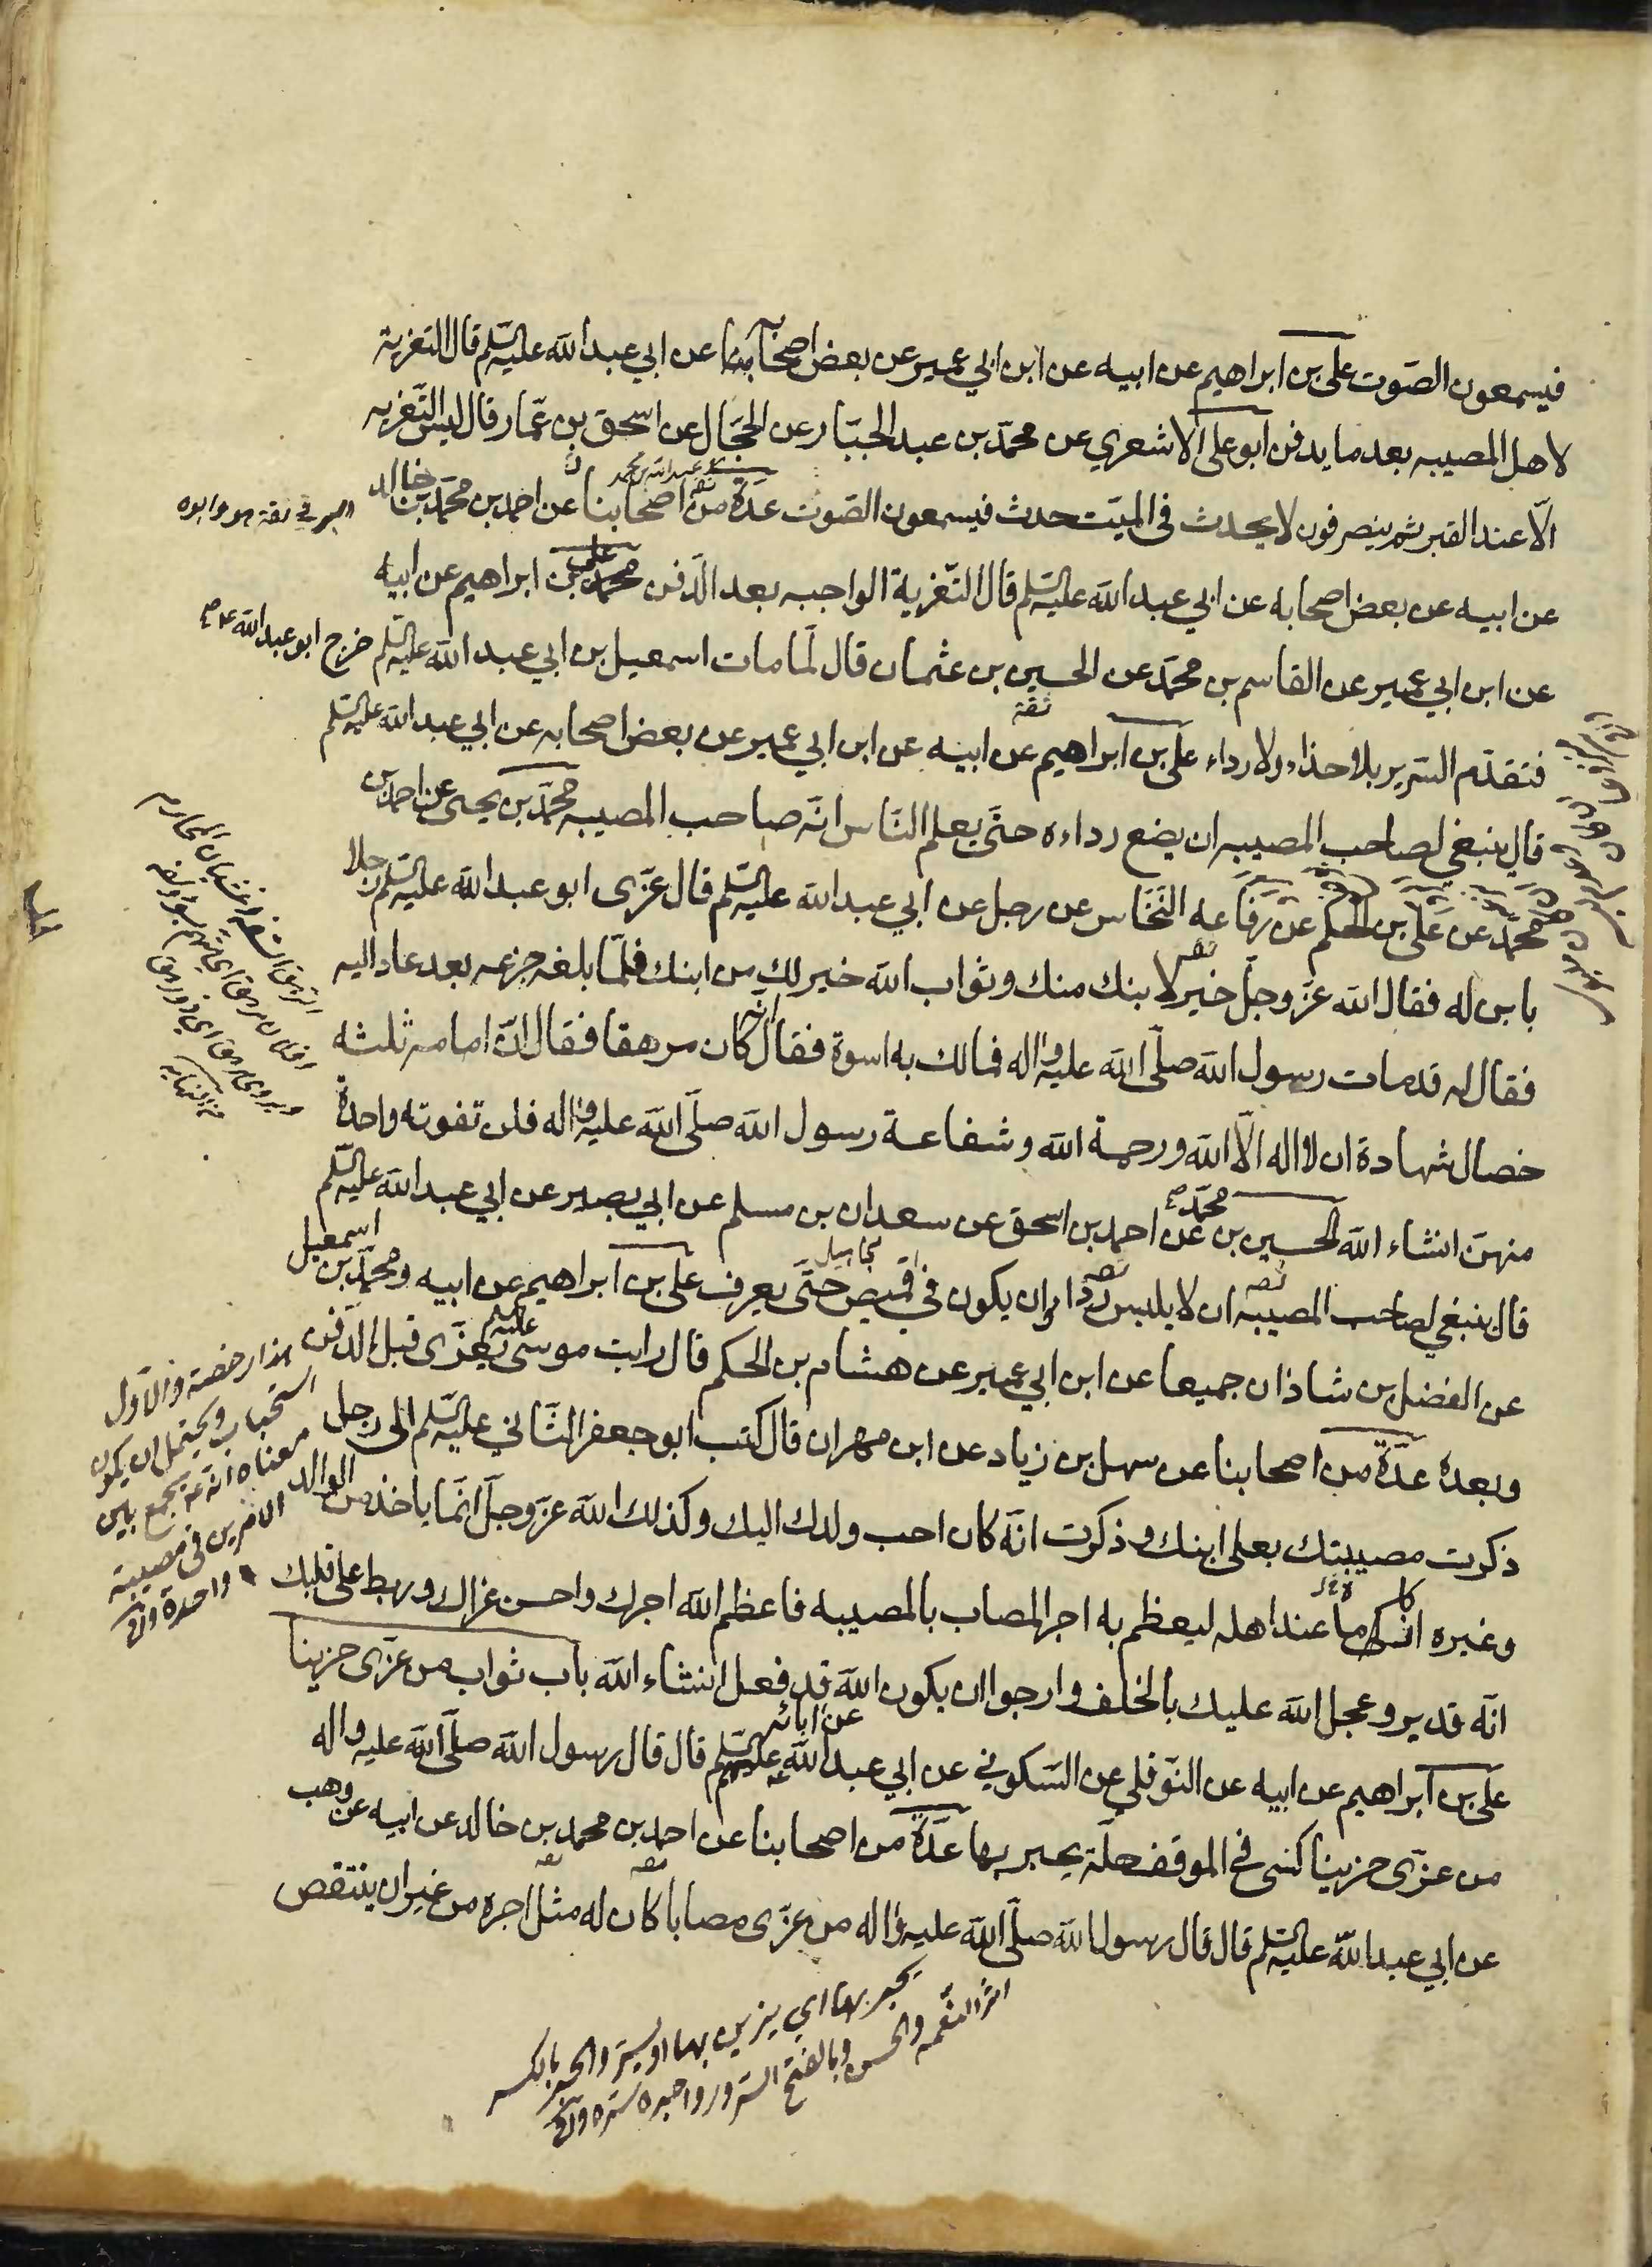 فيسمعون الصوت علي بن ابراهيم عن ابيه عن ابن ابي عمير عن بعض اصحابنا عن ابي عبد الله عليه السلم قال التعزية
لاهل المصيبه بعد ما يدفن ابو علي الاشعري عن محمد بن عبد الجبار عن الحجال عن اسحق بن عمار قال ليس التعزيه
الا عند القبر ثم ينصرفون لا يحدث في الميت حدث فيسمعون الصوت عدة من اصحابنا عن احمد بن محمد بن خالد
عن ابيه عن بعض اصحابه عن ابي عبد الله عليه السلم قال التعزية الواجبه بعد الدفن علي بن ابراهيم عن ابيه
عن ابن ابي عمير عن القاسم بن محمد عن الحسين بن عثمان قال لما مات اسمعيل بن ابي عبد الله عليه السلم خرج ابو عبد الله ع م
ثقة
فتقدم السرير بلا حذاء ولا رداء علي بن ابراهيم عن ابيه عن ابن ابي عمير عن بعض اصحابه عن ابي عبد الله عليه السلم
قال ينبغي لصاحب المصيبه ان يضع رداءه حتى يعلم الناس انه صاحب المصيبه محمد بن يحيى عن احمد بن
محمد عن علي بن الحكم عن رفاعه النخاس عن رجل عن ابي عبد الله عليه السلم قال عزى ابو عبد الله عليه السلم رجلا
بابن له فقال الله عز وجل خير لابنك منك وثواب الله خير لك من ابنك فلما بلغه جزعه بعد عاد اليه
فقال له قد مات رسول الله صلى الله عليه واله فما لك به اسوة فقال انه كان مرهقا فقال ان امامه ثلثه
خصال شهادة ان لا اله الا الله ورحمة الله وشفاعة رسول الله صلى الله عليه واله فلن تفوته واحدة
منهن انشاء الله الحسين بن محمد عن احمد بن اسحق عن سعدان بن مسلم عن ابي بصير عن ابي عبد الله عليه السلم
قال ينبغي لصاحب المصيبه ان لا يلبس رداء وان يكون في قميص حتى يعرف علي بن ابراهيم عن ابيه ومحمد بن اسمعيل
عن الفضل بن شاذان جميعا عن ابن ابي عمير عن هشام بن الحكم قال رايت موسى عليه السلم يعزى قبل الدفن
وبعده عدة من اصحابنا عن سهل بن زياد عن ابن مهران قال كتب ابو جعفر الثاني عليه السلم الى رجل
ذكرت مصيبتك بعلي ابنك وذكرت انه كان احب ولدك اليك وكذلك الله عز وجل انما ياخذ من الوالد
وغيره ازكى ما عند اهله ليعظم به اجر المصاب بالمصيبه فاعظم الله اجرك واحسن عزاك وربط على قلبك
انه قدير وعجل الله عليك بالخلف وارجوا ان يكون الله قد فعل انشاء الله باب ثواب من عزى حزينا
علي بن ابراهيم عن ابيه عن النوفلي عن السكوني عن ابي عبد الله عن ابائه عليهم السلم قال قال رسول الله صلى الله عليه واله
من عزى حزينا كسى في الموقف حلة يحبر بها عدة من اصحابنا عن احمد بن محمد بن خالد عن ابيه عن وهب
عن ابي عبد الله عليه السلم قال قال رسول الله صلى الله عليه واله من عزى مصابا كان له مثل اجره من غير ان ينتقص
هذا رخصة والاول
استحباب ويحتمل ان يكون
معناه انه ع يجمع بين
الامرين في مصيبة
واحدة
يحبر بها اي يزين بها او يسر والحبر بالكسر
اثر النعمه والحسن وبالفتح السرور واحبره سره